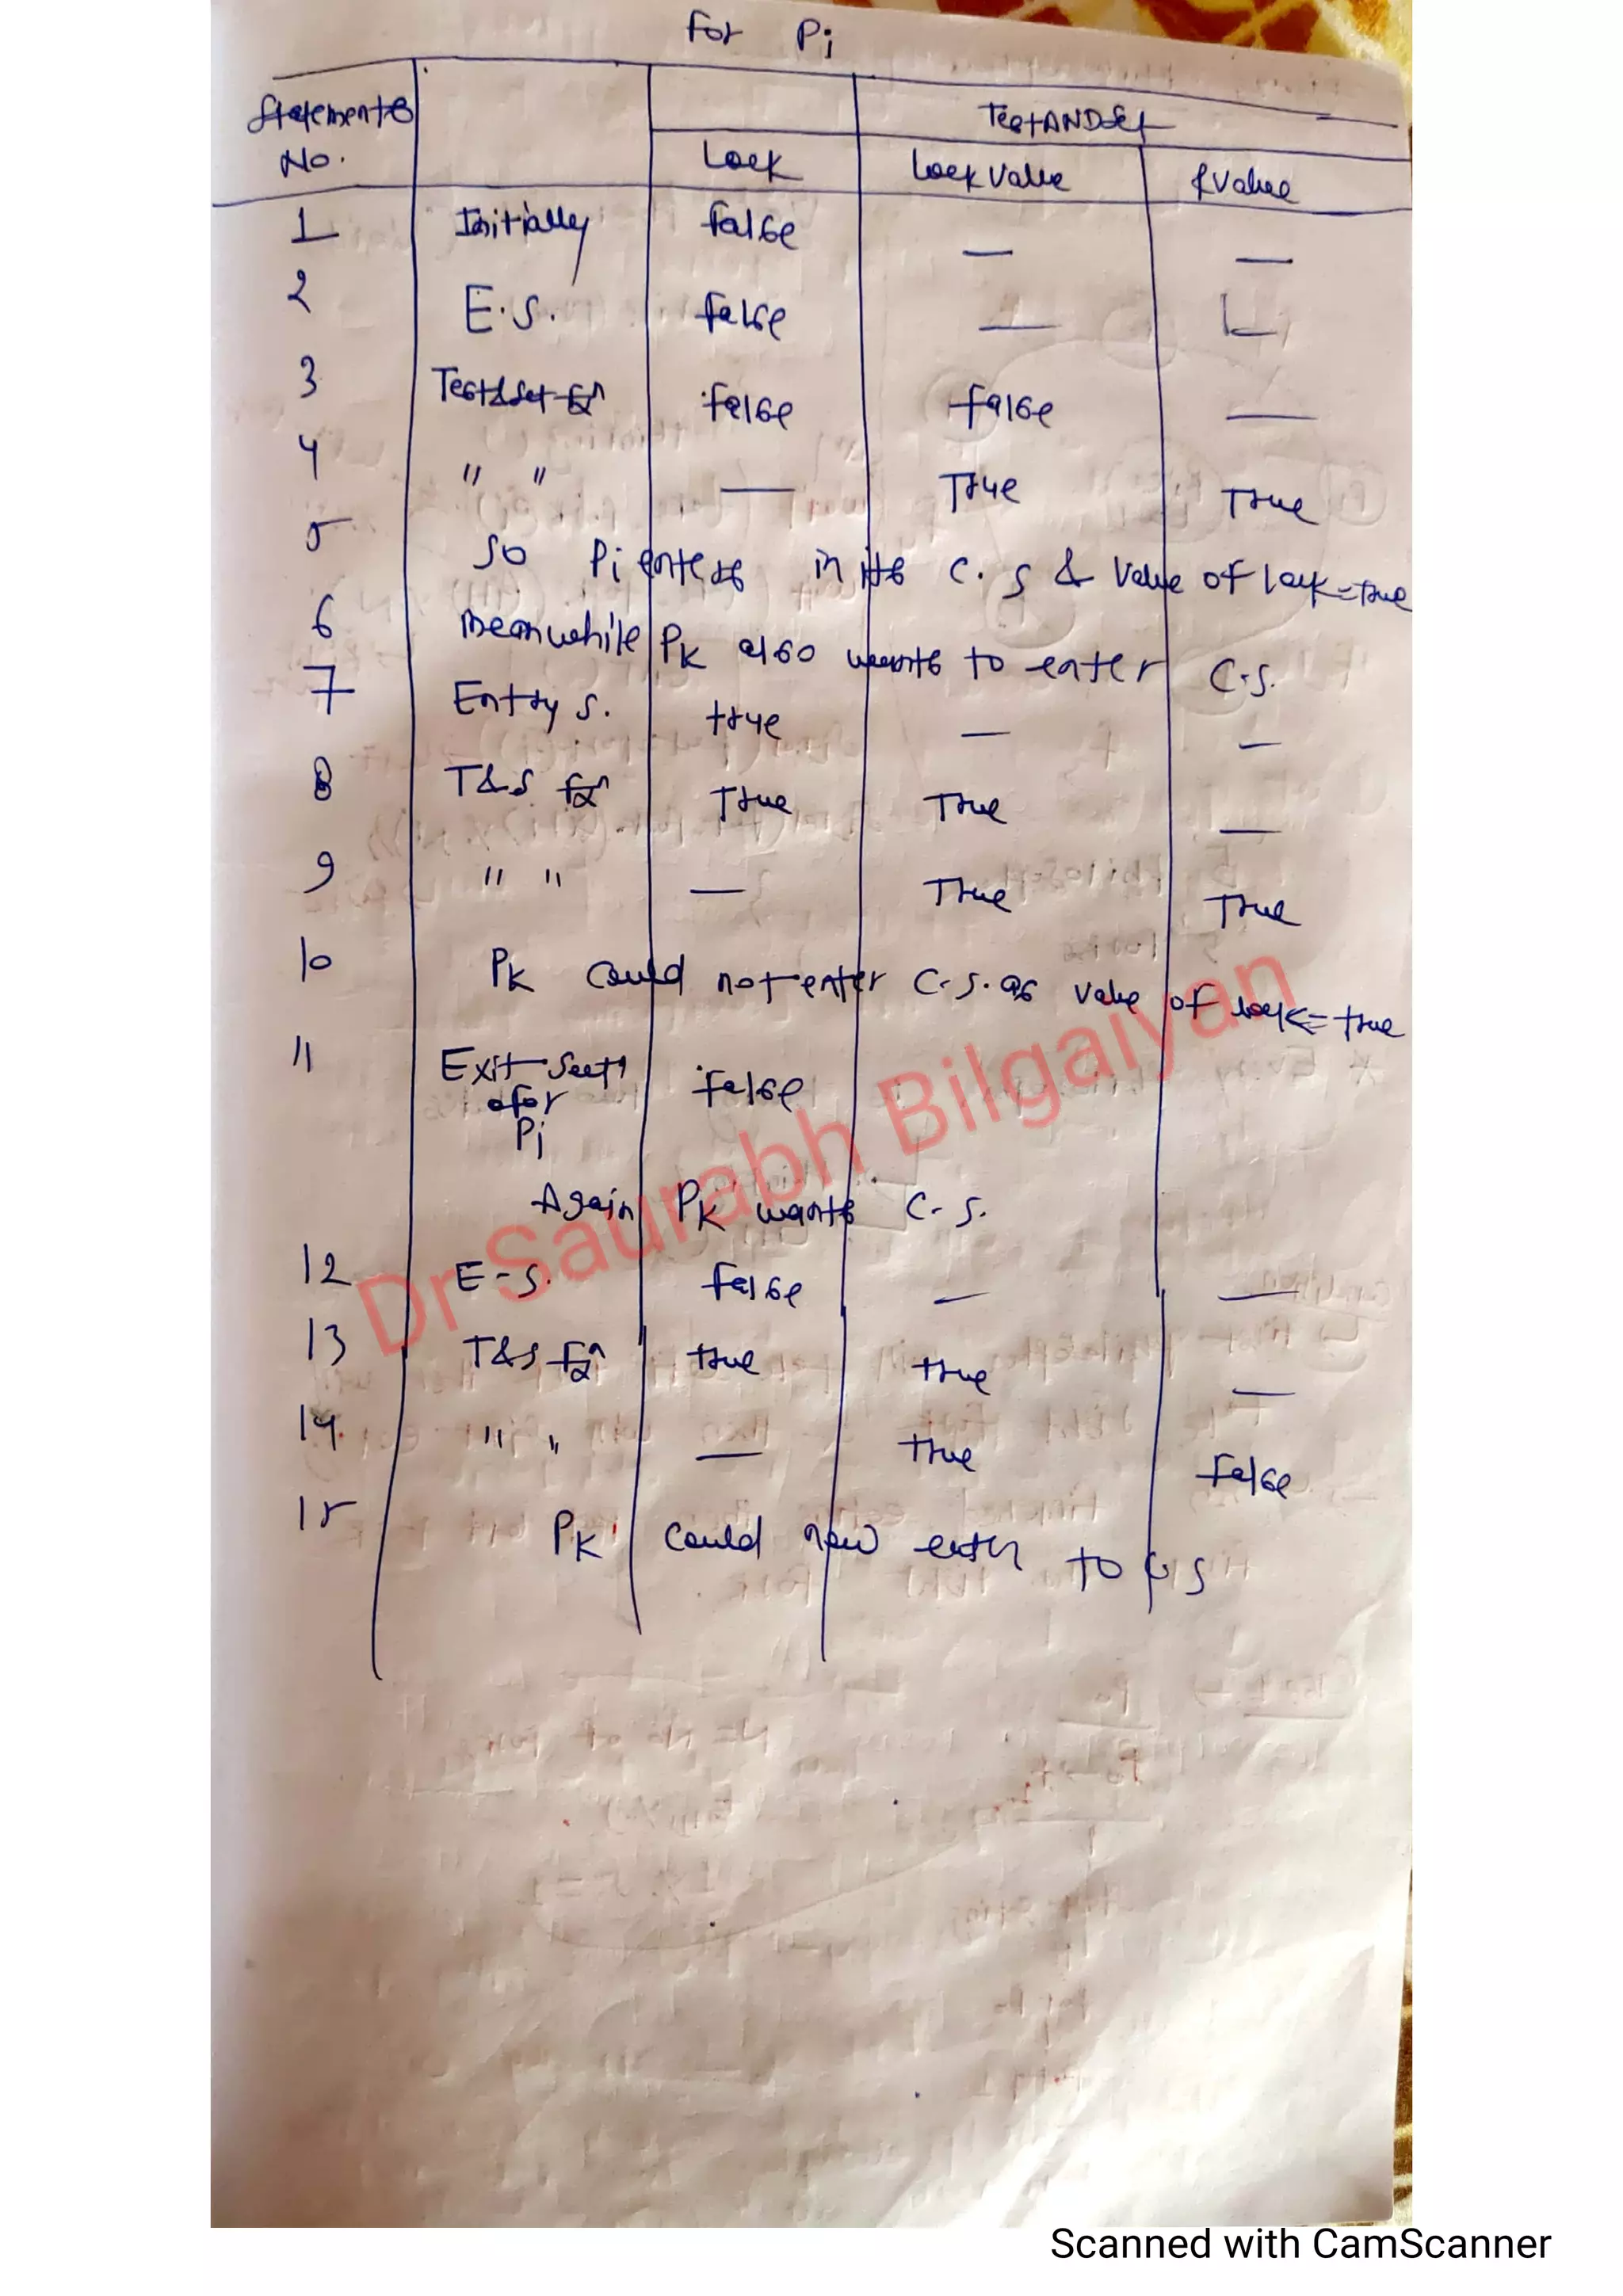 For Pi
Statements No. | | Lock | TestANDSet
Lock Value | rValue
1 Initially false — —
2 E.S. false — —
3 Test&Set fn false false —
4 " " — True True
5 So Pi enters in its C.S & Value of lock=true
6 Meanwhile Pk also wants to enter C.S.
7 Entry S. true — —
8 T&S fn True True —
9 " " — True True
10 Pk Could not enter C.S. as value of lock=true
11 Exit Sectn false
for
Pi
Again Pk wants C.S.
12 E-S. false — —
13 T&S fn true true —
14 " " — true False
15 Pk Could now enter to C S
Dr Saurabh Bilgaiyan
Scanned with CamScanner